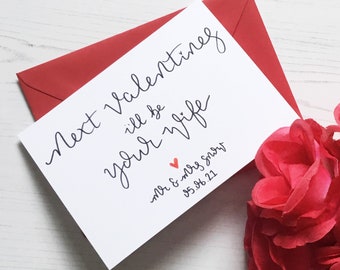 Next Valentines
i'll be
your Wife
Mr & Mrs Snow
05.06.21